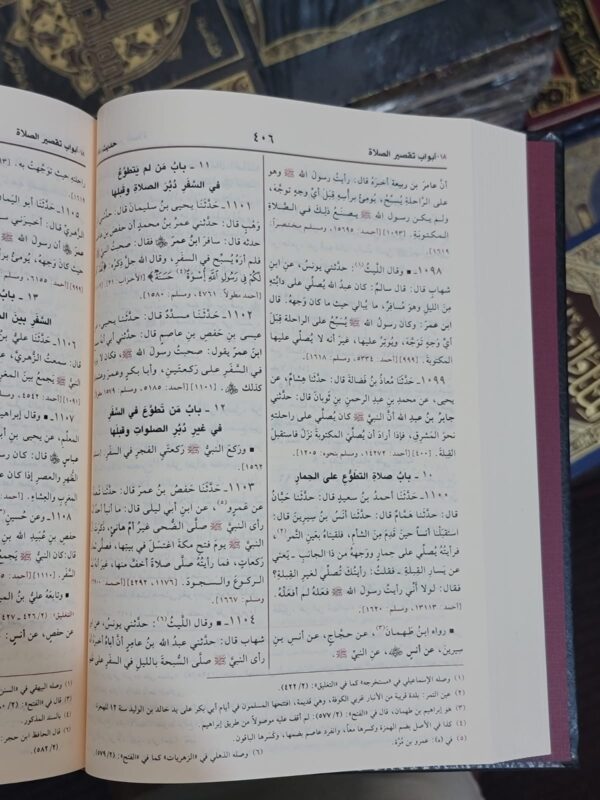 ١٨- أبواب تقصير الصلاة
٤٠٦
أنَّ عامرَ بن ربيعة أخبرَهُ قال: رأيتُ رسولَ الله ﷺ وهو
على الرَّاحلةِ يُسبِّحُ، يُومِئُ برأسِهِ قِبَلَ أيِّ وجهٍ توجَّهَ،
ولم يكن رسولُ الله ﷺ يصنعُ ذلِكَ في الصَّلاةِ
المكتوبَةِ. [١٠٩٣] [أحمد: ١٥٦٩٥، ومسلم مختصراً:
١٦١٩].
١٠٩٨- ▪ وقال اللَّيثُ(١): حدَّثني يونسُ، عن ابنِ
شهابٍ قال: قال سالمٌ: كان عبدُ الله يُصلِّي على دابَّتِهِ
مِنَ الليلِ وهو مُسافِرٌ، ما يُبالي حيث ما كان وَجهُهُ. قال
ابن عمرَ: وكان رسولُ الله ﷺ يُسَبِّحُ على الراحلة قِبَلَ
أيِّ وَجهٍ تَوجَّهَ، ويُوتِرُ عليها، غيرَ أنه لا يُصلِّي عليها
المكتوبةَ. [٩٩٩] [أحمد: ٥٣٣٤، ومسلم: ١٦١٨].
١٠٩٩- حدَّثنا مُعاذُ بنُ فَضَالةَ قال: حدَّثنا هِشامٌ، عن
يحيى، عن محمدِ بنِ عبدِ الرحمنِ بنِ ثَوبانَ قال: حدَّثني
جابرُ بنُ عبدِ الله أنَّ النبيَّ ﷺ كان يُصلِّي على راحلتِهِ
نحوَ المَشرِقِ، فإذا أرادَ أن يُصلِّيَ المكتوبةَ نَزَلَ فاستقبلَ
القِبلةَ. [٤٠٠] [أحمد: ١٤٢٧٢، ومسلم بنحوه: ١٢٠٥].
١٠ - بابُ صلاةِ التطوُّعِ على الحِمارِ
١١٠٠- حدَّثنا أحمدُ بنُ سعيدٍ قال: حدَّثنا حَبَّانُ
قال: حدَّثنا هَمَّامٌ قال: حدَّثنا أنَسُ بنُ سِيرينَ قال:
استَقبَلْنا أنساً حينَ قَدِمَ مِنَ الشَّأمِ، فلَقِيناهُ بعَينِ التَّمرِ(٢)،
فرأيتُهُ يُصلِّي على حمارٍ ووَجهُهُ من ذا الجانب - يَعني
عن يَسارِ القِبلةِ - فقلتُ: رأيتُكَ تُصلِّي لغيرِ القِبلةِ؟
فقال: لولا أنِّي رأيتُ رسولَ الله ﷺ فَعلَهُ لم أفعَلْهُ.
[أحمد: ١٣١١٣، ومسلم: ١٦٢٠].
▪ رواه ابنُ طَهمانَ(٣)، عن حجَّاجٍ، عن أنسِ بنِ
سِيرينَ، عن أنسٍ ﷺ، عن النبيِّ ﷺ.
١١ - بابُ مَن لم يتطوَّعْ
في السَّفَرِ دُبُرَ الصلاةِ وقبلَها
١١٠١- حدَّثنا يحيى بنُ سليمانَ قال: حدَّثني
وَهبٍ قال: حدَّثني عمرُ بنُ محمدٍ أن حفصَ بن
حدثه قال: سافرَ ابنُ عمرَ فقال: صحبتُ النبيَّ
فلم أرَهُ يُسبِّحُ في السفرِ، وقال اللهُ جلَّ ذِكرُه:
لَكُمْ فِي رَسُولِ اللَّهِ أُسْوَةٌ(٤) حَسَنَةٌ﴾ [الأحزاب: ٢١]
أحمد مطولاً: ٤٧٦١، ومسلم: ١٥٨٠].
١١٠٢- حدَّثنا مسدَّدٌ قال: حدَّثنا يحيى
عيسى بنِ حَفصِ بنِ عاصمٍ قال: حدَّثني أبي
ابنَ عمرَ يقول: صحبتُ رسولَ الله ﷺ، فكان لا
في السفَرِ على ركعتَينِ، وأبا بكرٍ وعمرَ
كذلك. [١١٠١] [أحمد: ٥١٨٥، ومسلم: ١٥٧٩
١٢ - بابُ مَن تَطَوَّعَ في السَّفَرِ
في غيرِ دُبُرِ الصلواتِ وقبلَها
▪ وركعَ النبيُّ ﷺ رَكعتَيِ الفَجرِ في السفَرِ.
١٥٦٢].
١١٠٣- حدَّثنا حفصُ بنُ عمرَ قال: حدَّثنا
عن عَمرٍو(٥)، عن ابنِ أبي لَيلى قال: ما
رأى النبيَّ ﷺ صلَّى الضُّحى غيرُ أمِّ هانئٍ، ذكَرتْ
النبيَّ ﷺ يومَ فتحِ مكةَ اغتسَلَ في بيتها، فصلَّى
رَكعاتٍ، فما رأيتُهُ صلَّى صلاةً أخفَّ منها، غيرَ أنه
الركوعَ والسجودَ. [١١٧٦، ٤٢٩٢]
ومسلم: ١٦٦٧].
١١٠٤- ▪ وقال اللَّيثُ(٦): حدَّثني يونسُ، عن
شهابٍ قال: حدَّثني عبدُ الله بنُ عامرٍ أنَّ أباهُ
رأى النبيَّ ﷺ صلَّى السُّبحةَ بالليلِ في السفَرِ
(١) وصله الإسماعيلي في «مستخرجه» كما في «التغليق»: (٤٢٢/٢).
(٢) عين التمر: بلدة قريبة من الأنبار غربي الكوفة، وهي قديمة، افتتحها المسلمون في أيام أبي بكر على يد خالد بن الوليد سنة ١٢ للهجرة
(٣) هو إبراهيم بن طهمان، قال في «الفتح»: (٥٧٧/٢): لم أقف عليه موصولاً من طريق إبراهيم.
(٤) كذا في الأصل بضم الهمزة وكسرها معاً، وانفرد عاصم بضمها، وكسرها الباقون.
(٥) في (ه): عمرو بن مُرَّة.
(٦) وصله الذهلي في «الزهريات» كما في «الفتح»: (٥٧٩/٢).
١٨- أبواب تقصير الصلاة
راحلتِهِ حيث توجَّهتْ به.
١٦١٩].
١١٠٥- حدَّثنا أبو اليَمَانِ
الزُّهريِّ قال: أخبرَني
عمرَ أن رسولَ الله ﷺ
حيث كان وَجهُهُ،
[٩٩٩] [أحمد: ٦١٥٥،
١٣ - بابُ
السَّفَرِ بينَ
١١٠٦- حدَّثنا عليُّ
قال: سمعتُ الزُّهريَّ، عن
النبيُّ ﷺ يَجمَعُ بينَ
[١٠٩١]
١١٠٧- ▪ وقال إبراهيمُ
المعلِّم، عن يحيى بنِ
عباسٍ قال: كان رسولُ
الظُّهرِ والعصرِ إذا كان
المغربِ والعِشاءِ.
١١٠٨- وعن حُسينٍ
حفصِ بنِ عُبيدِ الله بنِ
قال: كان النبيُّ ﷺ يَجمَعُ
السَّفَر. [١١١٠]
▪ وتابعَهُ عليُّ بنُ
عن حفصٍ، عن أنسٍ:
(١) وصله البيهقي في «السنن
(٢) قال في «الفتح»:
(٣) بالسند المذكور.
(٤) قال الحافظ ابن حجر:
(٥٨٢/٢).